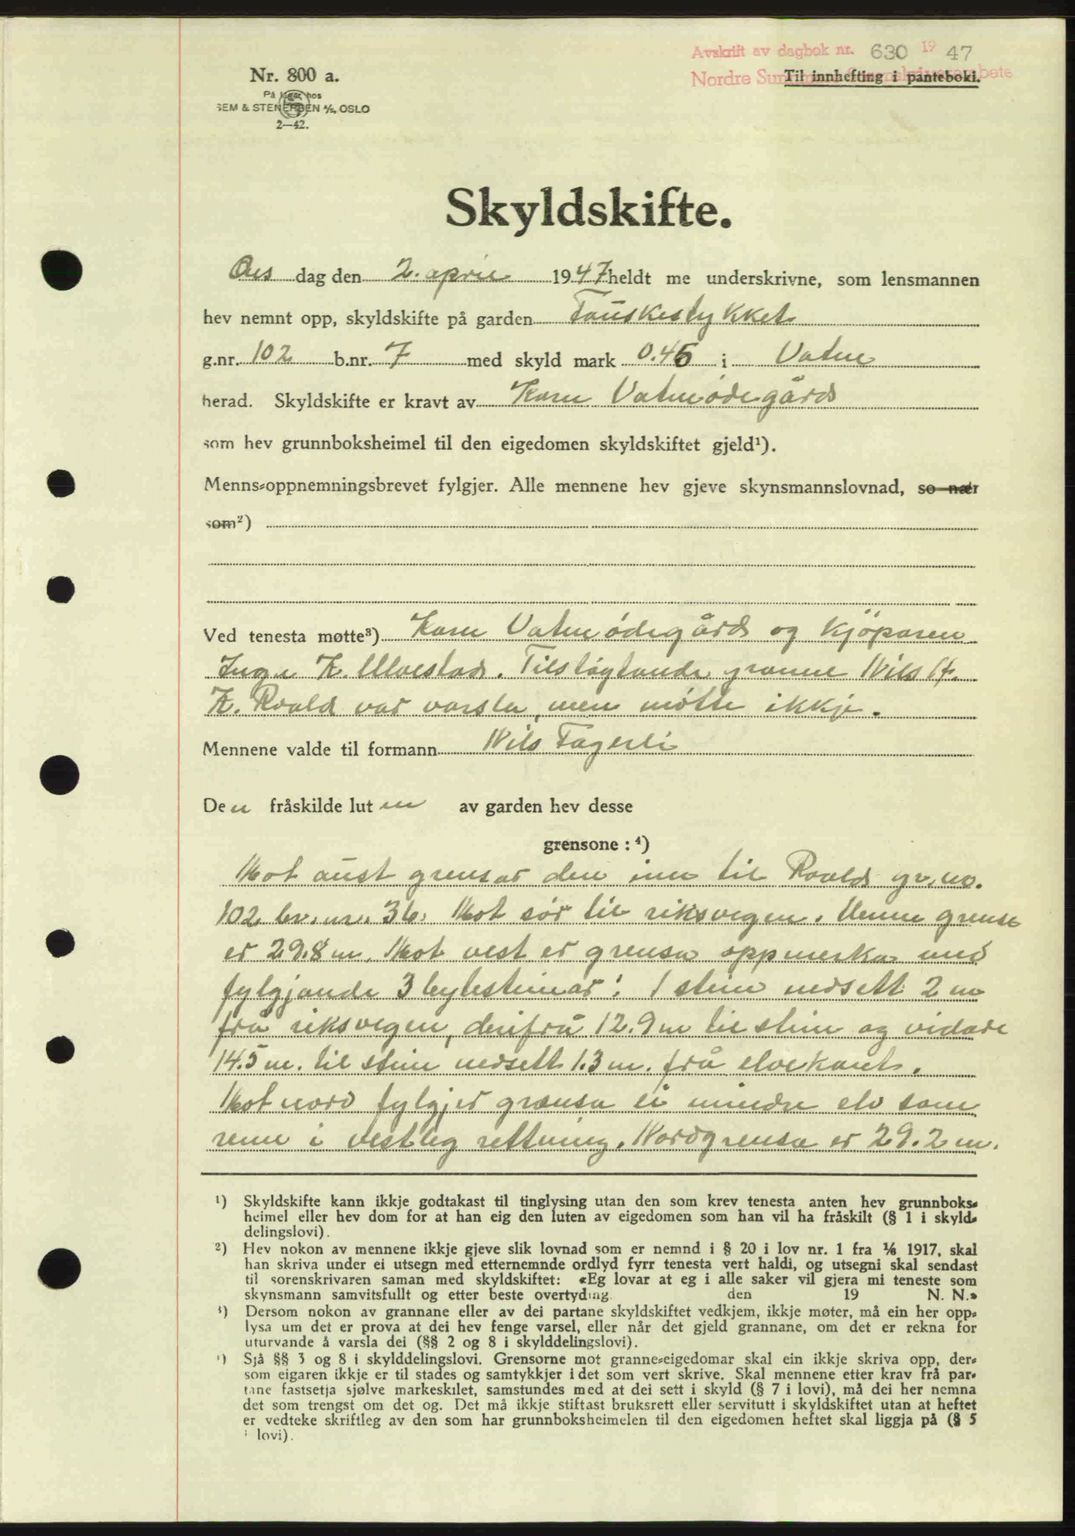 Avskrift av dagbok nr. 630 19 47
Nordre Sunnmøre Sorenskriverembete
Til innhefting i panteboki.
Nr. 800 a.
På lager hos
SEM & STENERSEN A/S, OSLO
2—42.
Skyldskifte.
Ons dag den 2. april 1947 heldt me underskrivne, som lensmannen
hev nemnt opp, skyldskifte på garden Tauskestykket
g.nr. 102 b.nr. 7 med skyld mark 0.46 i Vatne
herad. Skyldskifte er kravt av Karn Vatneødegård
som hev grunnboksheimel til den eigedomen skyldskiftet gjeld¹).
Menns-oppnemningsbrevet fylgjer. Alle mennene hev gjeve skynsmannslovnad, so nær
som²)
Ved tenesta møtte³) Karn Vatneødegård og kjöparen
Inge K. Ulvestad. Tilstøytande granne Nils H.
K. Roald var varsla, men møtte ikkje.
Mennene valde til formann Nils Fagerli
Den fråskilde luten av garden hev desse
grensone : ⁴)
Mot aust grensar den inn til Roalds gr. no.
102 br. nr. 36. Mot sør til riksvegen. Denne grense
er 29.8 m. Mot vest er grensa oppmerka med
fylgjande 3 bytesteinar: 1 stein nedsett 2 m
frå riksvegen, derifrå 12.9 m til stein og vidare
14.5 m. til stein nedsett 1.3 m. frå elvekant.
Mot nord fylgjer grensa ei mindre elv som
renn i vestleg rettning. Nordgrensa er 29.2 m.
¹) Skyldskifte kann ikkje godtakast til tinglysing utan den som krev tenesta anten hev grunnboks-
heimel eller hev dom for at han eig den luten av eigedomen som han vil ha fråskilt (§ 1 i skyld-
delingslovi).
²) Hev nokon av mennene ikkje gjeve slik lovnad som er nemnd i § 20 i lov nr. 1 fra ⅙ 1917, skal
han skriva under ei utsegn med etternemnde ordlyd fyrr tenesta vert haldi, og utsegni skal sendast
til sorenskrivaren saman med skyldskiftet: «Eg lovar at eg i alle saker vil gjera mi teneste som
skynsmann samvitsfullt og etter beste overtyding. den 19 N. N.»
³) Dersom nokon av grannane eller av dei partane skyldskiftet vedkjem, ikkje møter, må ein her opp-
lysa um det er prova at dei hev fenge varsel, eller når det gjeld grannane, om det er rekna for
uturvande å varsla dei (§§ 2 og 8 i skylddelingslovi).
⁴) Sjå §§ 3 og 8 i skylddelingslovi. Grensorne mot granne-eigedomar skal ein ikkje skriva opp, der-
som eigaren ikkje er til stades og samtykkjer i det som vert skrive. Skal mennene etter krav frå par-
tane fastsetja sjølve markeskilet, samstundes med at dei sett i skyld (§ 7 i lovi), må dei her nemna
det som trengst om det og. Det må ikkje stiftast bruksrett eller servitutt i skyldskiftet utan at heftet
er vedteke skriftleg av den som har grunnboksheimelen til den eigedomen heftet skal liggja på (§ 5
i lovi).